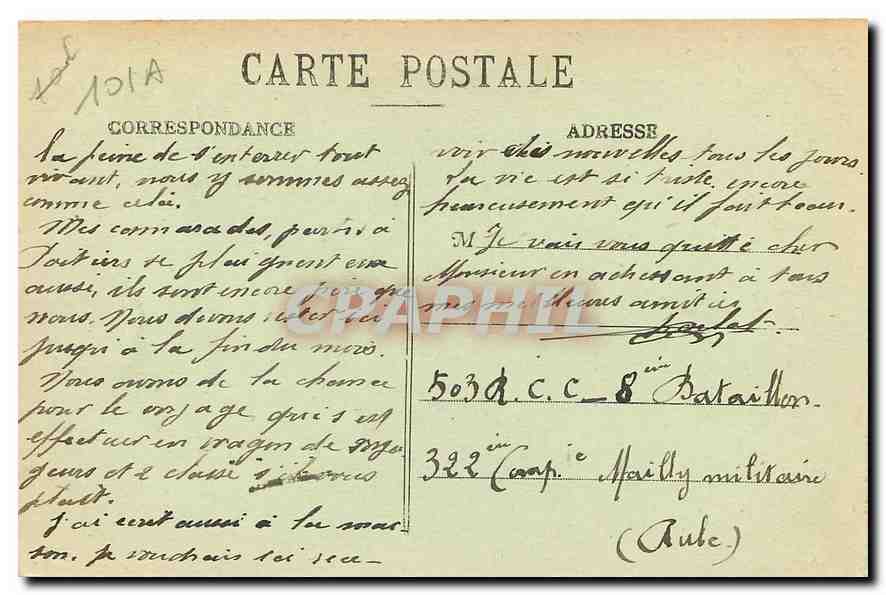 101A
CARTE POSTALE
CORRESPONDANCE
la peine de s'enterrer tout
vivant, nous y sommes assez
comme cela.
Mes camarades, partis à
Poitiers se plaignent eux
aussi, ils sont encore pire que
nous. Nous devons rester ici
jusqu'à la fin du mois.
Nous avons de la chance
pour le voyage qui s'est
effectuer en wagon de voya-
geurs et 2 classe s'il vous
plait.
J'ai écrit aussi à la mai-
son. Je voudrais ici rece-
ADRESSE
voir des nouvelles tous les jours.
La vie est si triste, encore
heureusement qu'il fait beau.
M Je vais vous quitté cher
Monsieur en adressant à tous
mes meilleures amitiés
503 R.C.C - 8 ièm Bataillon.
322 ièm Comp ie Mailly militaire
(Aube)
CPAPHIL